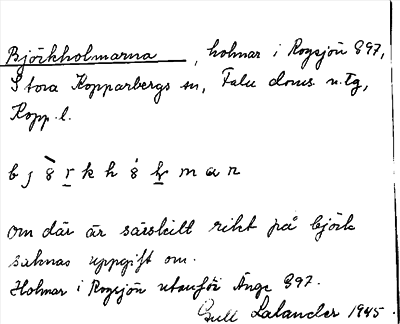 Björkholmarna, holmar i Rogsjön 897,
Stora Kopparbergs sn, Falu doms. n. tg,
Kopp. l.
b j ȣ̀ r̲ k h ȣ́ l̲ m a n
Om där är särskilt rikt på björk
saknas uppgift om.
Holmar i Rogsjön utanför Änge 897.
Gull Lalander 1945.